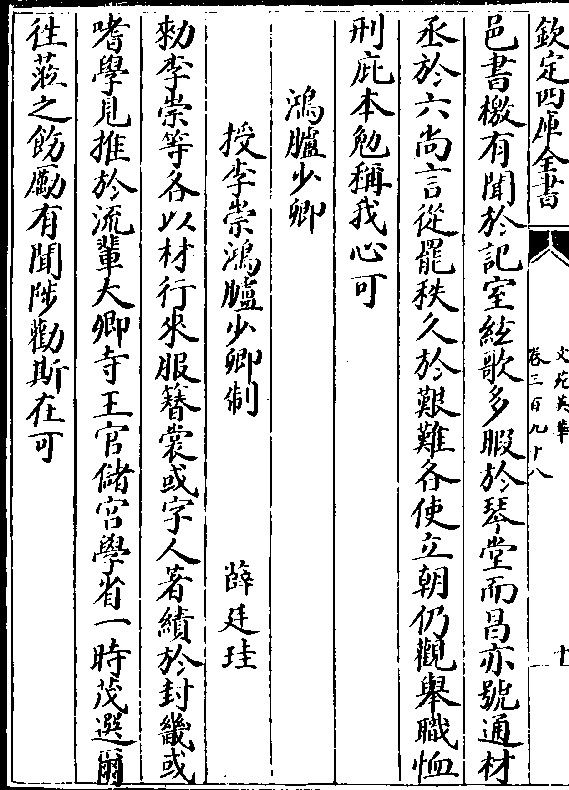 欽定四庫全書
文苑英華
卷三百九十八
十
邑書檄有聞於記室絃歌多暇於琴堂而昌亦號通材
丞於六尚言從罷秩久於艱難各使立朝仍觀舉職恤
刑庇本勉稱我心可
鴻臚少卿
授李崇鴻臚少卿制
薛廷珪
勅李崇等各以材行來服簪裳或字人著績於封畿或
嗜學見推於流輩大卿寺王官儲宮學省一時茂選爾
往蒞之飭勵有聞陟勸斯在可